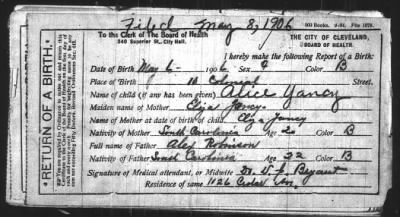 Filed May 8, 1906
To the Clerk of The Board of Health
340 Superior St., City Hall.
THE CITY OF CLEVELAND,
BOARD OF HEALTH.
RETURN OF A BIRTH.
I hereby make the following Report of a Birth:
Date of Birth May 6 1906 Sex Color B
Place of Birth 10 Colonial Street.
Name of child (if any has been given) Alice Yancy
Maiden name of Mother Eliza Yancy
Name of Mother at date of birth of child Eliza
Nativity of Mother South Carolinia Age 20 Color B
Full name of Father Alex Robinson
Nativity of Father South Carolinia Age 22 Color B
Signature of Medical attendant, or Midwife Dr. Bryant
Residence of same 1126 Cedar Ave.